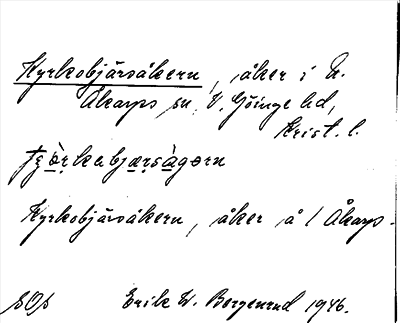 Kyrkobjärsåkern, åker i N.
Åkarps sn, V. Göinge hd,
Krist. l.
Kyrkobjärsåkern, åker å 1 Åkarp.
Erik W. Borgenrud 1946.